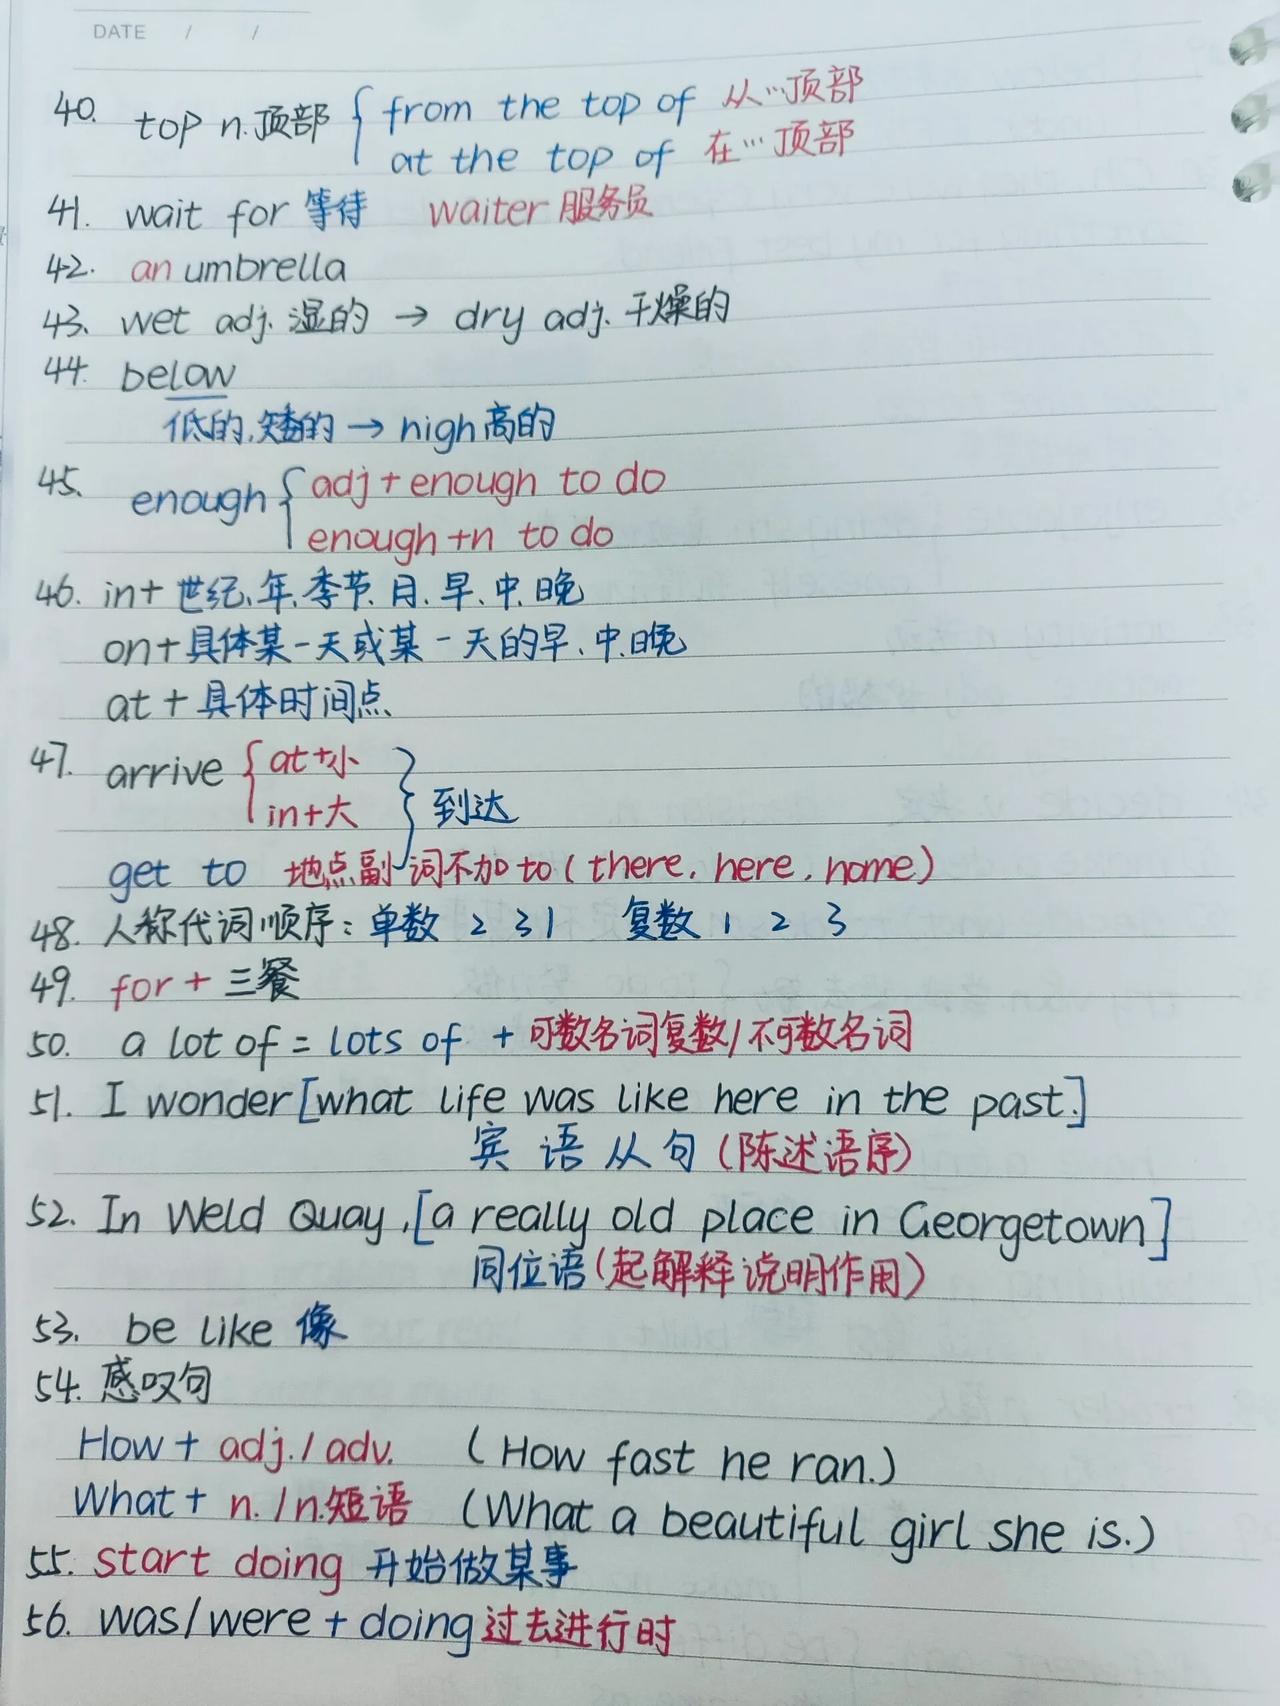 DATE / /
40. top n.顶部 { from the top of 从…顶部
at the top of 在…顶部
41. wait for 等待 waiter 服务员
42. an umbrella
43. wet adj. 湿的 → dry adj. 干燥的
44. below
低的,矮的 → high 高的
45. enough { adj + enough to do
enough + n to do
46. in + 世纪、年、季节、月、早、中、晚
on + 具体某一天或某一天的早、中、晚
at + 具体时间点
47. arrive { at + 小
in + 大 } 到达
get to 地点副词不加 to ( there, here, home )
48. 人称代词顺序: 单数 2 3 1 复数 1 2 3
49. for + 三餐
50. a lot of = lots of + 可数名词复数/不可数名词
51. I wonder [what life was like here in the past.]
宾语从句 (陈述语序)
52. In Weld Quay, [a really old place in Georgetown]
同位语 (起解释说明作用)
53. be like 像
54. 感叹句
How + adj. / adv. ( How fast he ran. )
What + n. / n.短语 ( What a beautiful girl she is. )
55. start doing 开始做某事
56. was/were + doing 过去进行时